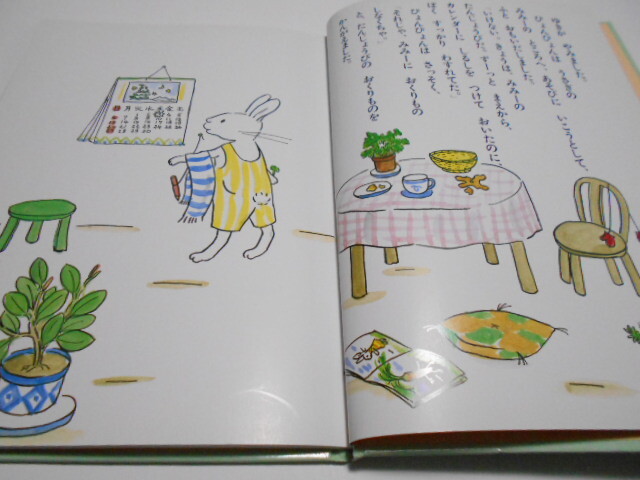 ゆきが やみました。
ぴょんぴょんは うさぎの
みみーの ところへ、あそびに いこうとして、
ふと おもいだしました。
「いけない、きょうは、みみーの
たんじょうびだ。ずーっと まえから、
カレンダーに しるしを つけて おいたのに、
ぼく、すっかり わすれてた。」
ぴょんぴょんは さっそく、
「それじゃ、みみーに おくりもの
しなくちゃ。」
と、たんじょうびの おくりものを
かんがえました。
月 火 水 木 金 土